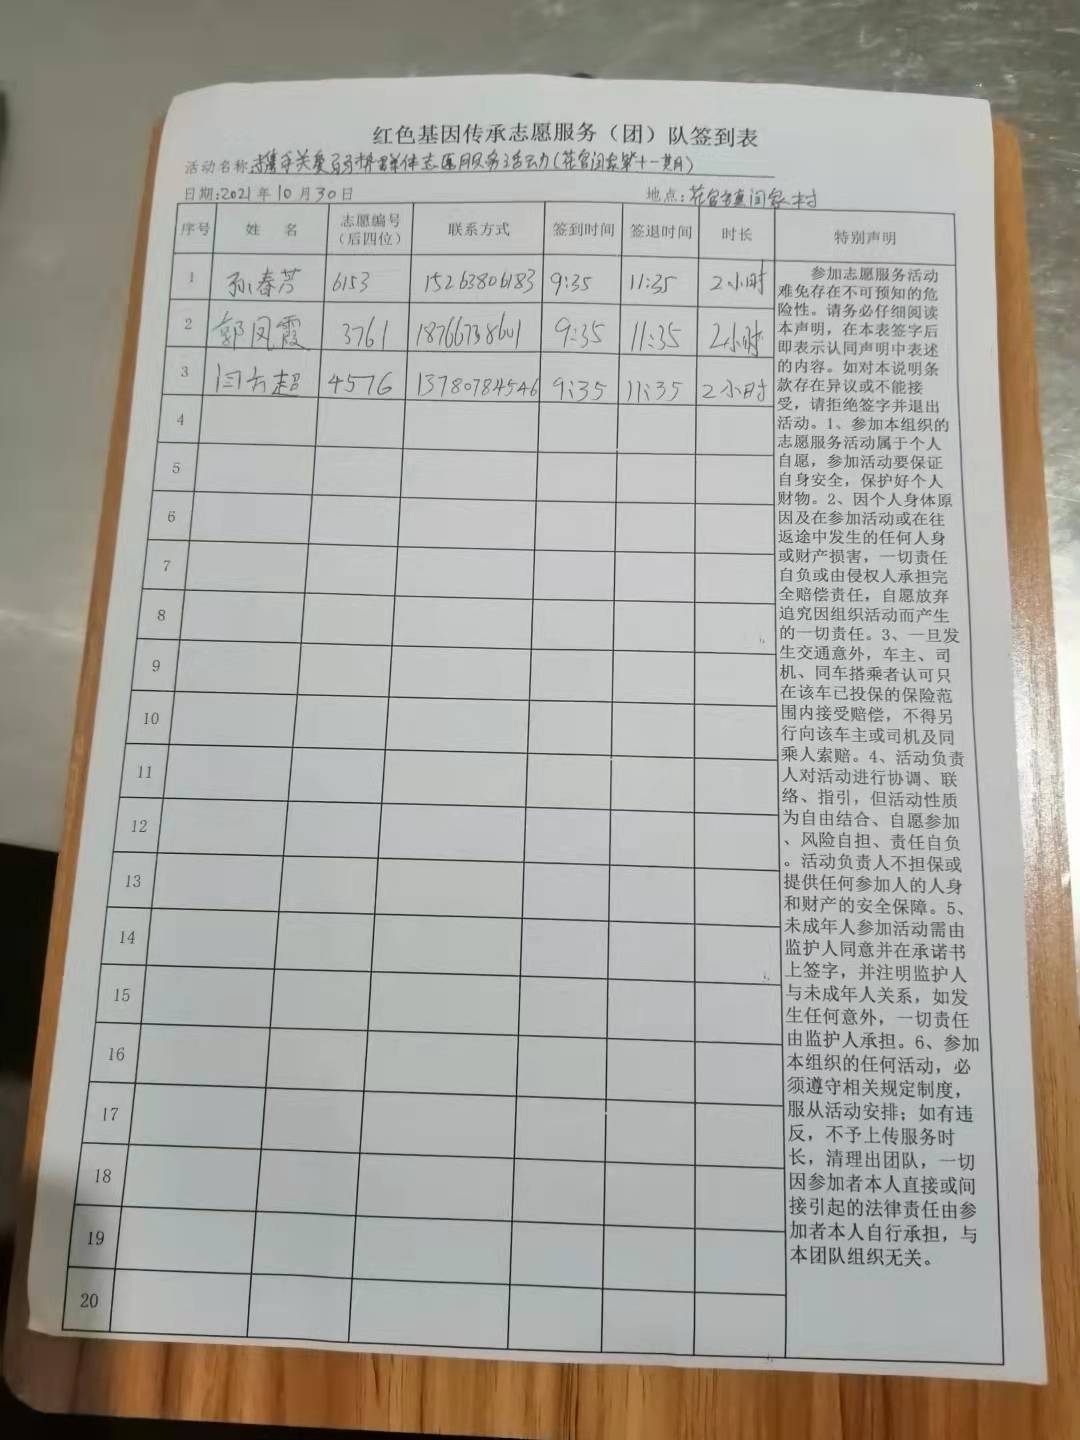 红色基因传承志愿服务（团）队签到表
活动名称:携手关爱弱势群体志愿服务活动(花官闫家第十一期)
日期:2021年10月30日 地点:花官镇闫家村
序号 姓 名 志愿编号（后四位） 联系方式 签到时间 签退时间 时长 特别声明
1 孙春芳 6153 15263806183 9:35 11:35 2小时
2 郭凤霞 3761 18766738601 9:35 11:35 2小时
3 闫方超 4576 13780784546 9:35 11:35 2小时
4
5
6
7
8
9
10
11
12
13
14
15
16
17
18
19
20
参加志愿服务活动
难免存在不可预知的危
险性。请务必仔细阅读
本声明，在本表签字后
即表示认同声明中表述
的内容。如对本说明条
款存在异议或不能接
受，请拒绝签字并退出
活动。1、参加本组织的
志愿服务活动属于个人
自愿，参加活动要保证
自身安全，保护好个人
财物。2、因个人身体原
因及在参加活动或在往
返途中发生的任何人身
或财产损害，一切责任
自负或由侵权人承担完
全赔偿责任，自愿放弃
追究因组织活动而产生
的一切责任。3、一旦发
生交通意外，车主、司
机、同车搭乘者认可只
在该车已投保的保险范
围内接受赔偿，不得另
行向该车主或司机及同
乘人索赔。4、活动负责
人对活动进行协调、联
络、指引，但活动性质
为自由结合、自愿参加
、风险自担、责任自负
。活动负责人不担保或
提供任何参加人的人身
和财产的安全保障。5、
未成年人参加活动需由
监护人同意并在承诺书
上签字，并注明监护人
与未成年人关系，如发
生任何意外，一切责任
由监护人承担。6、参加
本组织的任何活动，必
须遵守相关规定制度，
服从活动安排；如有违
反，不予上传服务时
长，清理出团队，一切
因参加者本人直接或间
接引起的法律责任由参
加者本人自行承担，与
本团队组织无关。